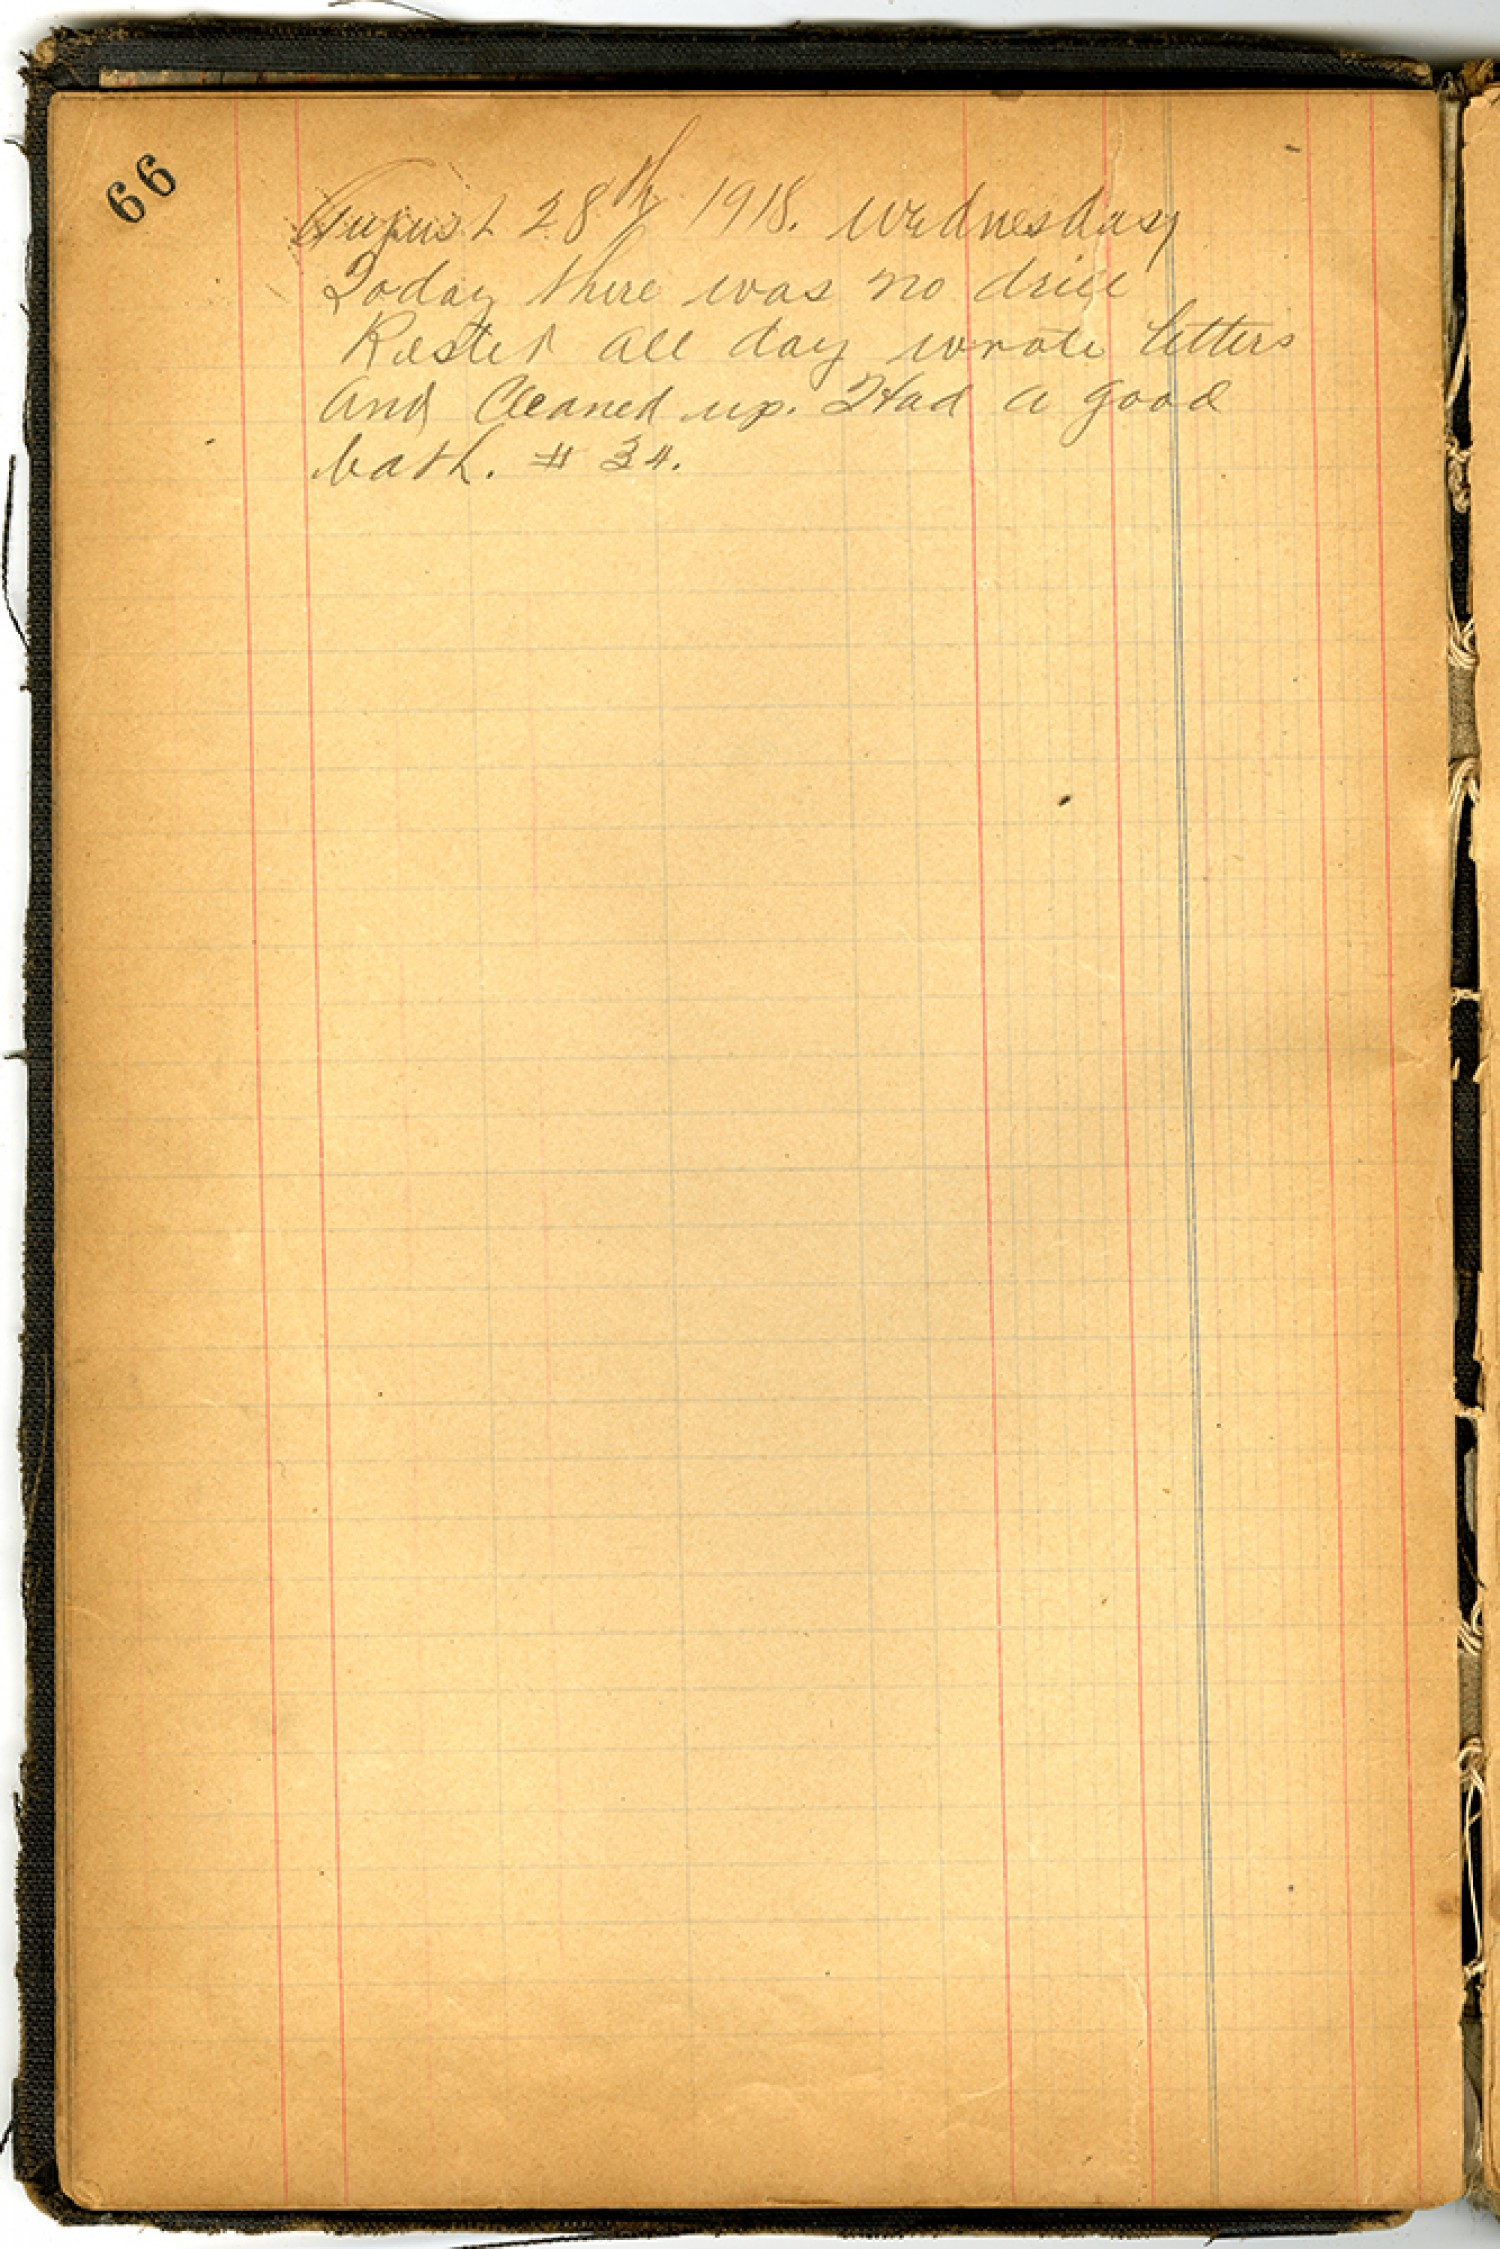 66
August 28th 1918. Wednesday
Today there was no drill
Rested all day wrote letters
and Cleaned up. Had a good
bath. # 34.